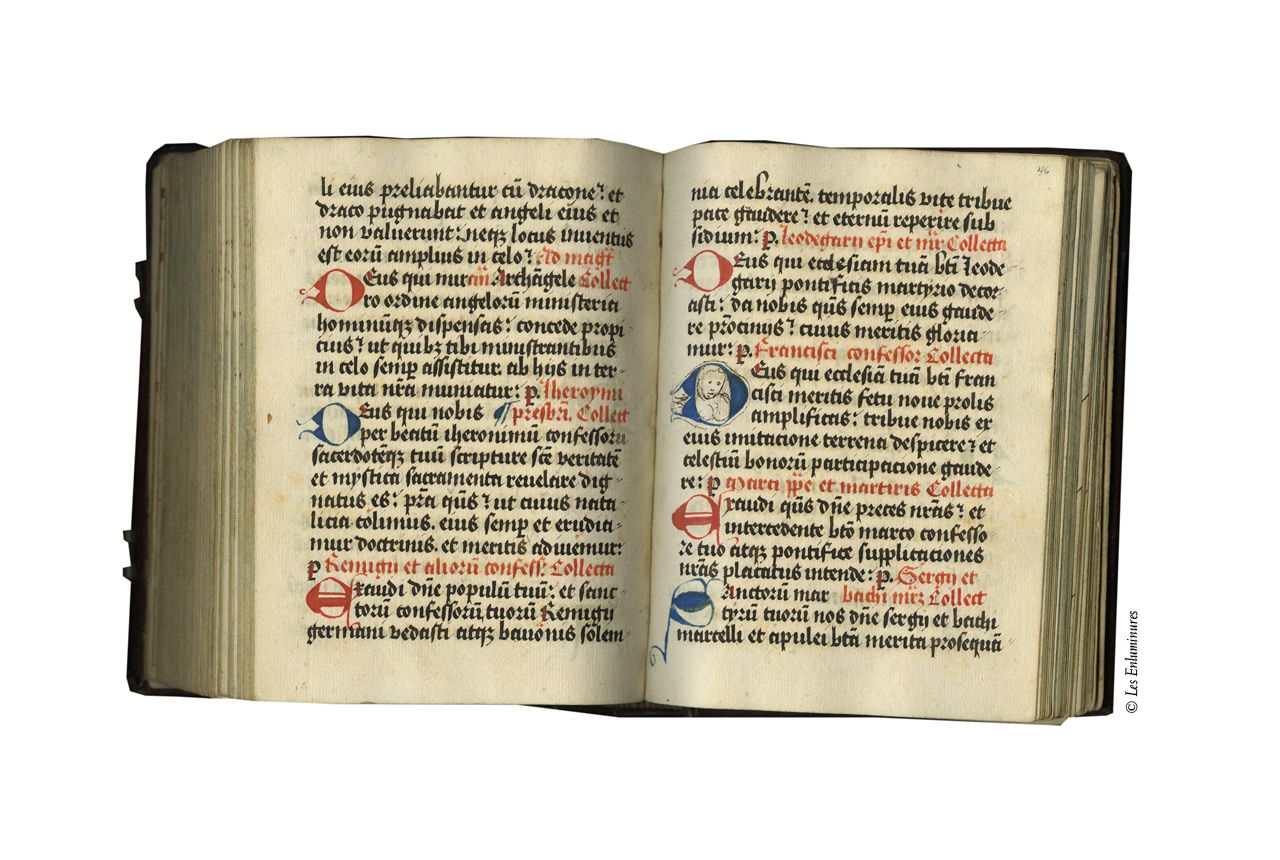 li eius preliabantur cū dracone: et
draco pugnabat et angeli eius et
non valuerunt: neqꝫ locus inuentus
est eorū amplius in celo: Ad magt̄
Deus qui miram Archāgele Collect
ro ordine angelorū ministeria
hominūqꝫ dispensas: concede propi-
cius: ut quibꝫ tibi ministrantibus
in celo semp̄ assistitur. ab hijs in ter-
ra vita nr̄a muniatur: p. Iheronymi
Deus qui nobis ¶ presbrī. Collect
per beatū iheronimū confessorū
sacerdotēqꝫ tuū scripture scē veritatē
et mystica sacramenta reuelare dig-
natus es: p̄ta qūs: ut cuius nata-
licia colimus. eius semp̄ et erudia-
mur doctrinis. et meritis adiuuemur:
p Remigij et aliorū confess: Collecta
Exaudi dn̄e populū tuū: et sanc-
torū confessorū tuorū Remigij
germani vedasti atqꝫ bauonis sōlem-
46
nia celebrantē. temporalis vite tribue
pace gaudere: et eternū reperire sub
sidium: p. leodegarij ep̄i et mr̄ Collecta
Deus qui ecclesiam tuā btī leode-
garij pontificis martyrio decor-
asti: da nobis qūs semp̄ eius gaude-
re p̄rocinijs: cuius meritis gloria-
mur: p. Francisci confessor Collecta
Deus qui ecclesiā tuā btī fran-
cisci meritis fetu noue prolis
amplificas: tribue nobis ex
eius imitacione terrena despicere: et
celestiū bonorū participacione gaude-
re: p Marci pp̄e et martiris Collecta
Exaudi qūs dn̄e preces nrās: et
intercedente btō marco confesso-
re tuo atqꝫ pontifice supplicaciones
nrās placatus intende: p. Sergij et
Sanctorū mar bachi mr̄ꝫ Collect
tyrū tuorū nos dn̄e sergij et bachi
marcelli et apulei btā merita prosequā-
© Les Enluminures